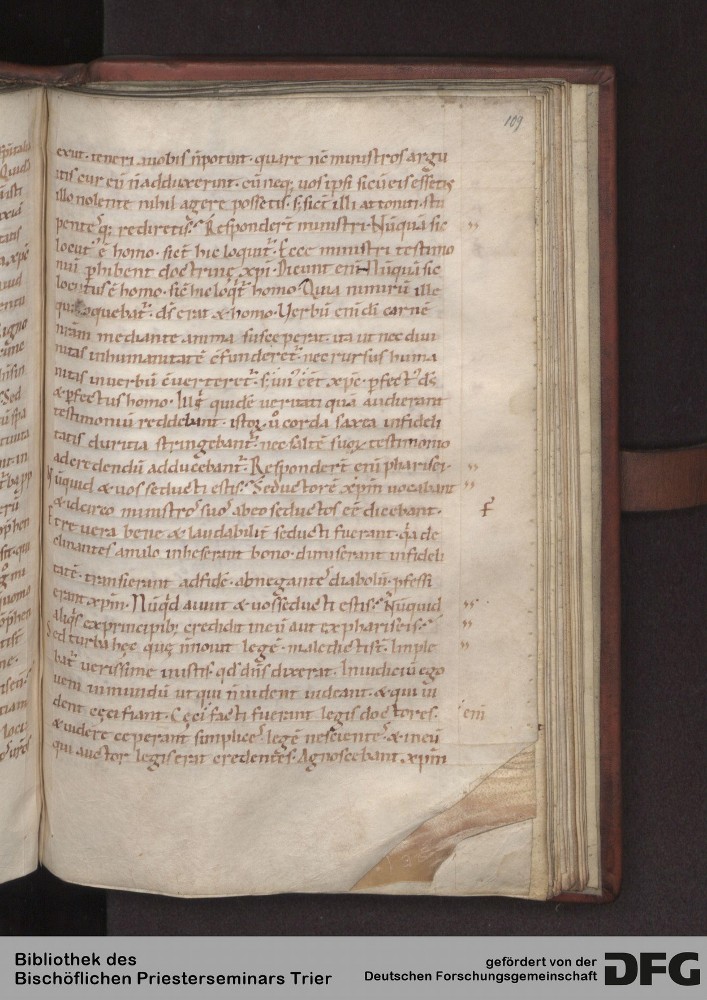 109
exiit · teneri a uobis n̄ potuit · quare nō ministros argu
itis cur eū n̄ adduxerint · cū neq; uos ipsi si cū eis essetis
illo nolente nihil agere possetis · s; sic̄ illi attoniti · stu
pente q; rediretis · Responder̄t ministri · Nūquā sic
locut᾽ ē homo · sic̄ hic loquit᾽ · Ecce ministri testimo
niū p̄hibent doctrinę xp̄i · Dicunt eni᾽ · Nūquā sic
locutus ē homo · sic̄ hic loq̄t᾽ homo · Quia nimirū ille
qui loquebat᾽ · ds̄ erat & homo · Verbū eni᾽ di᾽ carnē
nr̄am mediante anima susceperat · ita ut nec diui
nitas in humanitatē ɔ̄funderet᾽ · nec rursus huma
nitas in uerbū ɔ̄uerteret᾽ · s; un᾽ eēt xp̄c · pfect᾽ ds̄
& pfectus homo · quidē ueritati quā audierant
testimoniū reddebant · istoꝝ u᾽o corda saxea infideli
tatis duritia stringebant᾽ · nec saltē suoꝝ testimonio
ad credendū adducebant᾽ · Responder̄t eni᾽ pharisei ·
Nūquid & uos seducti estis · Seductorē xp̄m uocabant
& idcirco ministros suos ab eo seductos eē dicebant ·
Et re uera bene & laudabilit᾽ seducti fuerant · q̄a de
clinantes a malo inheserant bono · dimiserant infideli
tatē · transierant ad fidē · abnegantes diabolū · pfessi
erant xp̄m · Nūq̄d aiunt & uos seducti estis · Nūquid
aliq̄s ex principib; credidit in eū aut ex phariseis ·
Sed turba hęc quę n̄ nouit legē · maledicti st̄ · Imple
bat᾽ uerissime in istis qd᾽ dn̄s dixerat · In iudiciū ego
ueni in mundū ut qui n̄ uident uideant · & qui ui
dent cęci fiant · Cęci facti fuerant legis doctores · eni᾽
& uidere ceperant simplices legē nescientes · & in eū
qui auctor legis erat credentes · Agnoscebant xp̄m
Bibliothek des
Bischöflichen Priesterseminars Trier
gefördert von der
Deutschen Forschungsgemeinschaft
DFG